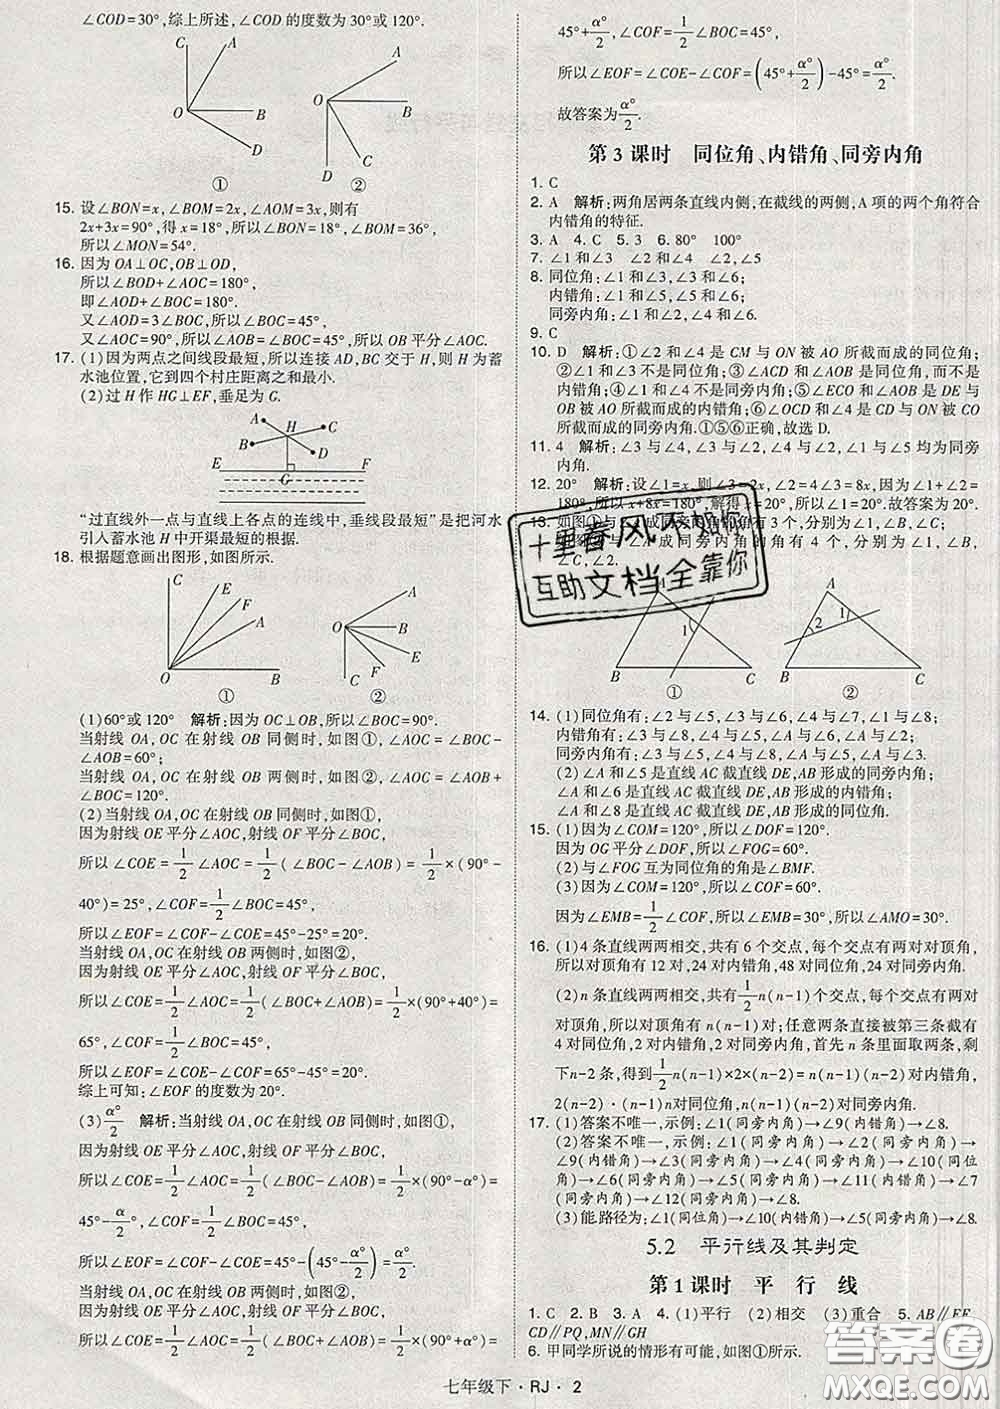 ∠COD=30°,综上所述,∠COD的度数为30°或120°.
C A O B D ①
A O B C D ②
15. 设∠BON=x,∠BOM=2x,∠AOM=3x,则有
2x+3x=90°,得x=18°,所以∠BON=18°,∠BOM=36°,
所以∠MON=54°.
16. 因为OA⊥OC,OB⊥OD,
所以∠BOD+∠AOC=180°,
即∠AOD+∠BOC=180°.
又∠AOD=3∠BOC,所以∠BOC=45°,
又∠AOC=90°,所以∠AOB=45°,所以OB平分∠AOC.
17. (1)因为两点之间线段最短,所以连接AD,BC交于H,则H为蓄
水池位置,它到四个村庄距离之和最小.
(2)过H作HG⊥EF,垂足为G.
A H C B D E F G
“过直线外一点与直线上各点的连线中,垂线段最短”是把河水
引入蓄水池H中开渠最短的根据.
18. 根据题意画出图形,如图所示.
C E F A O B ①
A O B E F C ②
(1)60°或120° 解析:因为OC⊥OB,所以∠BOC=90°.
当射线OA,OC在射线OB同侧时,如图①,∠AOC=∠BOC-
∠AOB=60°;
当射线OA,OC在射线OB两侧时,如图②,∠AOC=∠AOB+
∠BOC=120°.
(2)当射线OA,OC在射线OB同侧时,如图①,
因为射线OE平分∠AOC,射线OF平分∠BOC,
所以∠COE=1/2∠AOC=1/2(∠BOC-∠AOB)=1/2×(90°-
40°)=25°,∠COF=1/2∠BOC=45°,
所以∠EOF=∠COF-∠COE=45°-25°=20°.
当射线OA,OC在射线OB两侧时,如图②,
因为射线OE平分∠AOC,射线OF平分∠BOC,
所以∠COE=1/2∠AOC=1/2(∠BOC+∠AOB)=1/2×(90°+40°)=
65°,∠COF=1/2∠BOC=45°,
所以∠EOF=∠COE-∠COF=65°-45°=20°.
综上可知:∠EOF的度数为20°.
(3)α°/2 解析:当射线OA,OC在射线OB同侧时,如图①,
因为射线OE平分∠AOC,射线OF平分∠BOC,
所以∠COE=1/2∠AOC=1/2(∠BOC-∠AOB)=1/2×(90°-α°)=
45°-α/2°,∠COF=1/2∠BOC=45°,
所以∠EOF=∠COF-∠COE=45°-(45°-α°/2)=α°/2.
当射线OA,OC在射线OB两侧时,如图②,
因为射线OE平分∠AOC,射线OF平分∠BOC,
所以∠COE=1/2∠AOC=1/2(∠BOC+∠AOB)=1/2×(90°+α°)=
45°+α°/2,∠COF=1/2∠BOC=45°,
所以∠EOF=∠COE-∠COF=(45°+α°/2)-45°=α°/2.
故答案为α°/2.
第3课时 同位角、内错角、同旁内角
1. C
2. A 解析:两角居两条直线内侧,在截线的两侧,A项的两个角符合
内错角的特征.
3. A 4. C 5. 3 6. 80° 100°
7. ∠1和∠3 ∠2和∠4 ∠2,∠5
8. 同位角:∠1和∠3,∠3和∠6;
内错角:∠1和∠4,∠5和∠6;
同旁内角:∠1和∠6.
9. C
10. D 解析:①∠2和∠4是CM与ON被AO所截而成的同位角;
②∠1和∠3不是同位角;③∠ACD和∠AOB是同位角,而不是
内错角;④∠1和∠4不是同旁内角;⑤∠ECO和∠AOB是DE与
OB被AO所截而成的内错角;⑥∠OCD和∠4是CD与ON被CO
所截而成的同旁内角.①⑤⑥正确,故选D.
11. 4 解析:∠3与∠4,∠3与∠2,∠4与∠2,∠1与∠5均为同旁
内角.
12. 20° 解析:设∠1=x,则∠3=2x,∠2=4∠3=8x,因为∠1+∠2=
180°,所以x+8x=180°,解得x=20°,所以∠1=20°.故答案为20°.
13. 如图①与∠1成同旁内角的角有3个,分别为∠1,∠B,∠C.
∠C,∠2.
十里春风不如你
互助文档全靠你
1 B C ①
A 2 1 B C ②
14. (1)同位角有:∠2与∠5,∠3与∠6,∠4与∠7,∠1与∠8;
内错角有:∠3与∠8,∠4与∠5,∠A与∠6,∠2与∠A;
同旁内角有:∠A与∠5,∠4与∠8,∠A与∠3.
(2)∠A和∠5是直线AC截直线DE,AB形成的同旁内角,
∠A和∠6是直线AC截直线DE,AB形成的内错角,
∠A和∠8是直线AC截直线DE,AB形成的同位角.
15. (1)因为∠COM=120°,所以∠DOF=120°.
因为OG平分∠DOF,所以∠FOG=60°.
(2)与∠FOG互为同位角的角是∠BMF.
(3)因为∠COM=120°,所以∠COF=60°.
因为∠EMB=1/2∠COF,所以∠EMB=30°,所以∠AMO=30°.
16. (1)4条直线两两相交,共有6个交点,每个交点有两对对顶角,
所以对顶角有12对,24对内错角,48对同位角,24对同旁内角.
(2)n条直线两两相交,共有1/2n(n-1)个交点,每个交点有两对
对顶角,所以对顶角有n(n-1)对;任意两条直接被第三条截有
4对同位角,2对内错角,2对同旁内角,首先n条里面取两条,剩
下n-2条,得到1/2n(n-1)×2×(n-2)=n(n-1)(n-2)对内错角,
2(n-2)·(n-1)n对同位角,n(n-1)(n-2)对同旁内角.
17. (1)答案不唯一,示例:∠1(同旁内角)→∠9(内错角)→∠8.
(2)答案不唯一,示例:∠1(同旁内角)→∠2(同旁内角)→
∠9(内错角)→∠3(同旁内角)→∠4(同旁内角)→∠10(同位
角)→∠6(同旁内角)→∠5(同旁内角)→∠11(内错角)→∠7
(同旁内角)→∠12(同旁内角)→∠8.
(3)能.路径为:∠1(同位角)→∠10(内错角)→∠5(同旁内角)→∠8.
5.2 平行线及其判定
第1课时 平行线
1. C 2. B 3. A 4. (1)平行 (2)相交 (3)重合 5. AB∥EF,
CD∥PQ,MN∥GH
6. 甲同学所说的情形有可能,如图①所示.
七年级下·RJ·2
答案圈
MXQE.COM